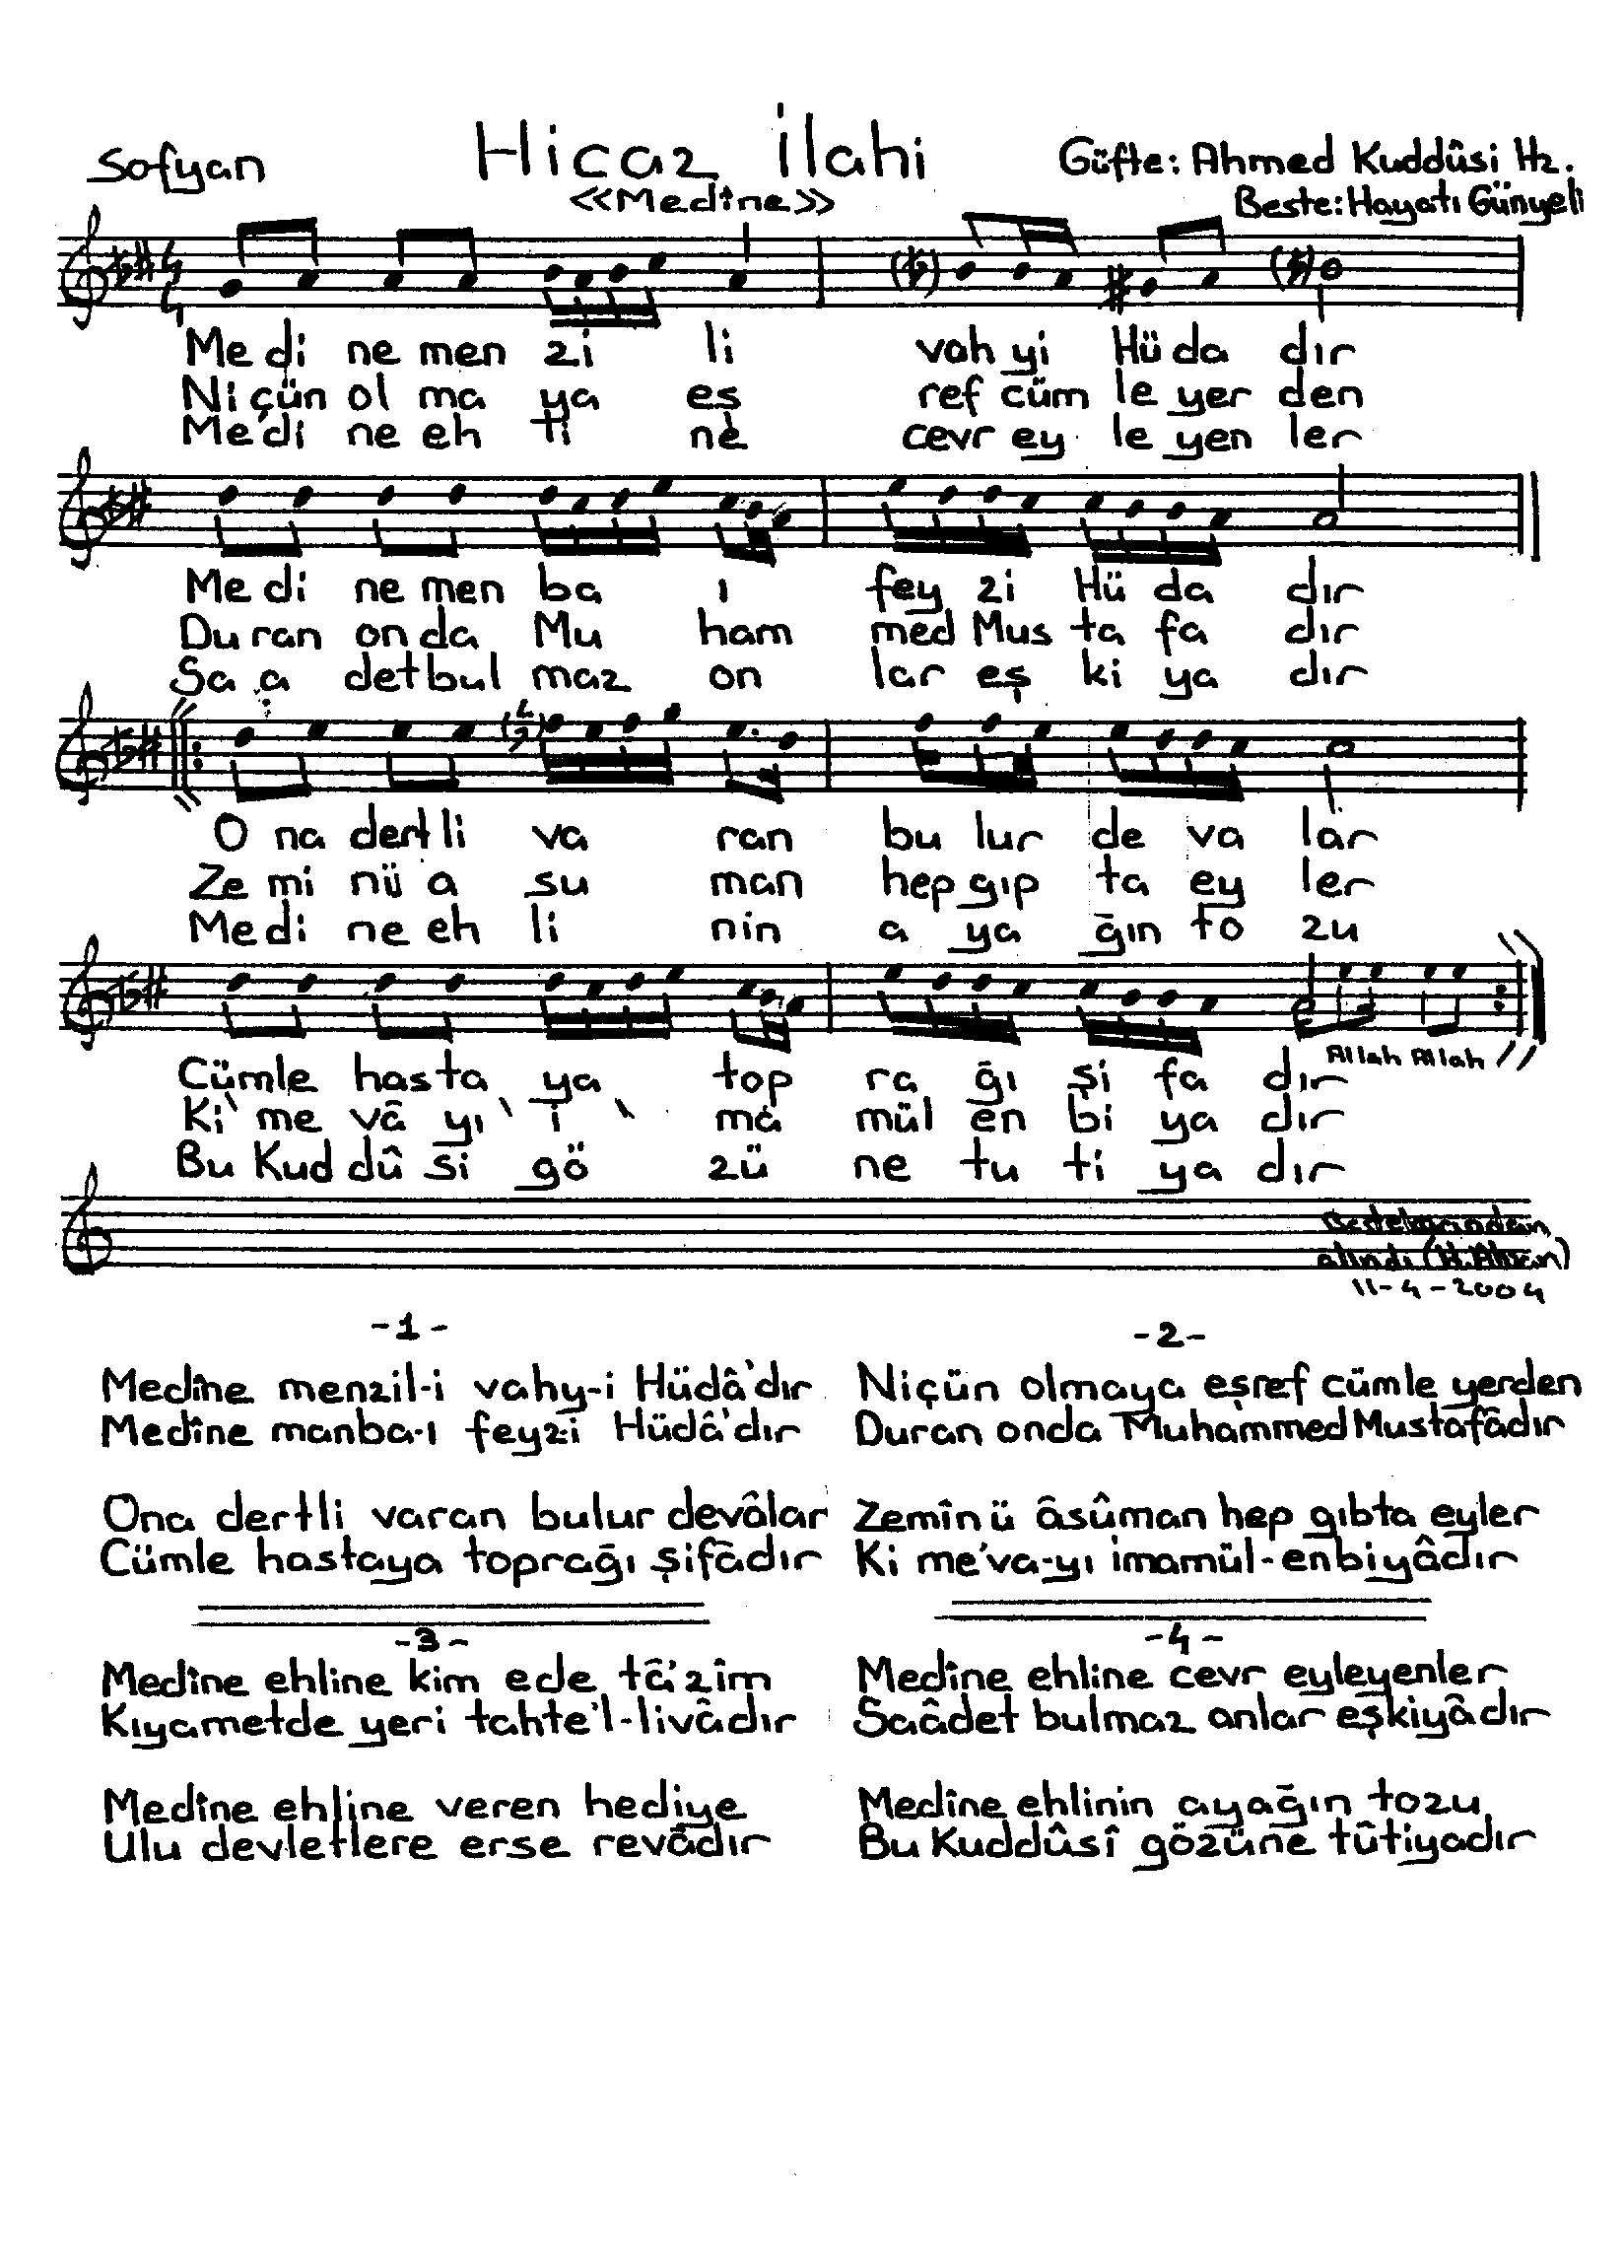 Sofyan
Hicaz İlahi
<<Medîne>>
Güfte: Ahmed Kuddûsi Hz.
Beste: Hayati Günyeli
Me di ne men zi li vah yi Hü da dır
Ni çün ol ma ya eş ref cüm le yer den
Me di ne eh ti ne cevr ey le yen ler
Me di ne men ba ı fey zi Hü da dır
Du ran on da Mu ham med Mus ta fa dır
Sa a det bul maz on lar eş ki ya dır
O na dert li va ran bu lur de va lar
Ze mi nü a su man hep gıp ta ey ler
Me di ne eh li nin a ya ğın to zu
Allah Allah
Cümle has ta ya top ra ğı şi fa dır
Ki me vâ yı i ma mül en bi ya dır
Bu Kud dû si gö zü ne tu ti ya dır
Bestekârından
alındı (H.
11-4-2004
-1-
Medîne menzil-i vahy-i Hüdâ'dır
Medîne manba-ı feyz-i Hüdâ'dır
Ona dertli varan bulur devâlar
Cümle hastaya toprağı şifâdır
-2-
Niçün olmaya eşref cümle yerden
Duran onda Muhammed Mustafâdır
Zemîn ü âsûman hep gıbta eyler
Ki me'va-yı imamül-enbiyâdır
-3-
Medîne ehline kim ede tâ'zîm
Kıyametde yeri tahte'l-livâdır
Medîne ehline veren hediye
Ulu devletlere erse revâdır
-4-
Medîne ehline cevr eyleyenler
Saâdet bulmaz anlar eşkiyâdır
Medîne ehlinin ayağın tozu
Bu Kuddûsî gözüne tûtiyadır